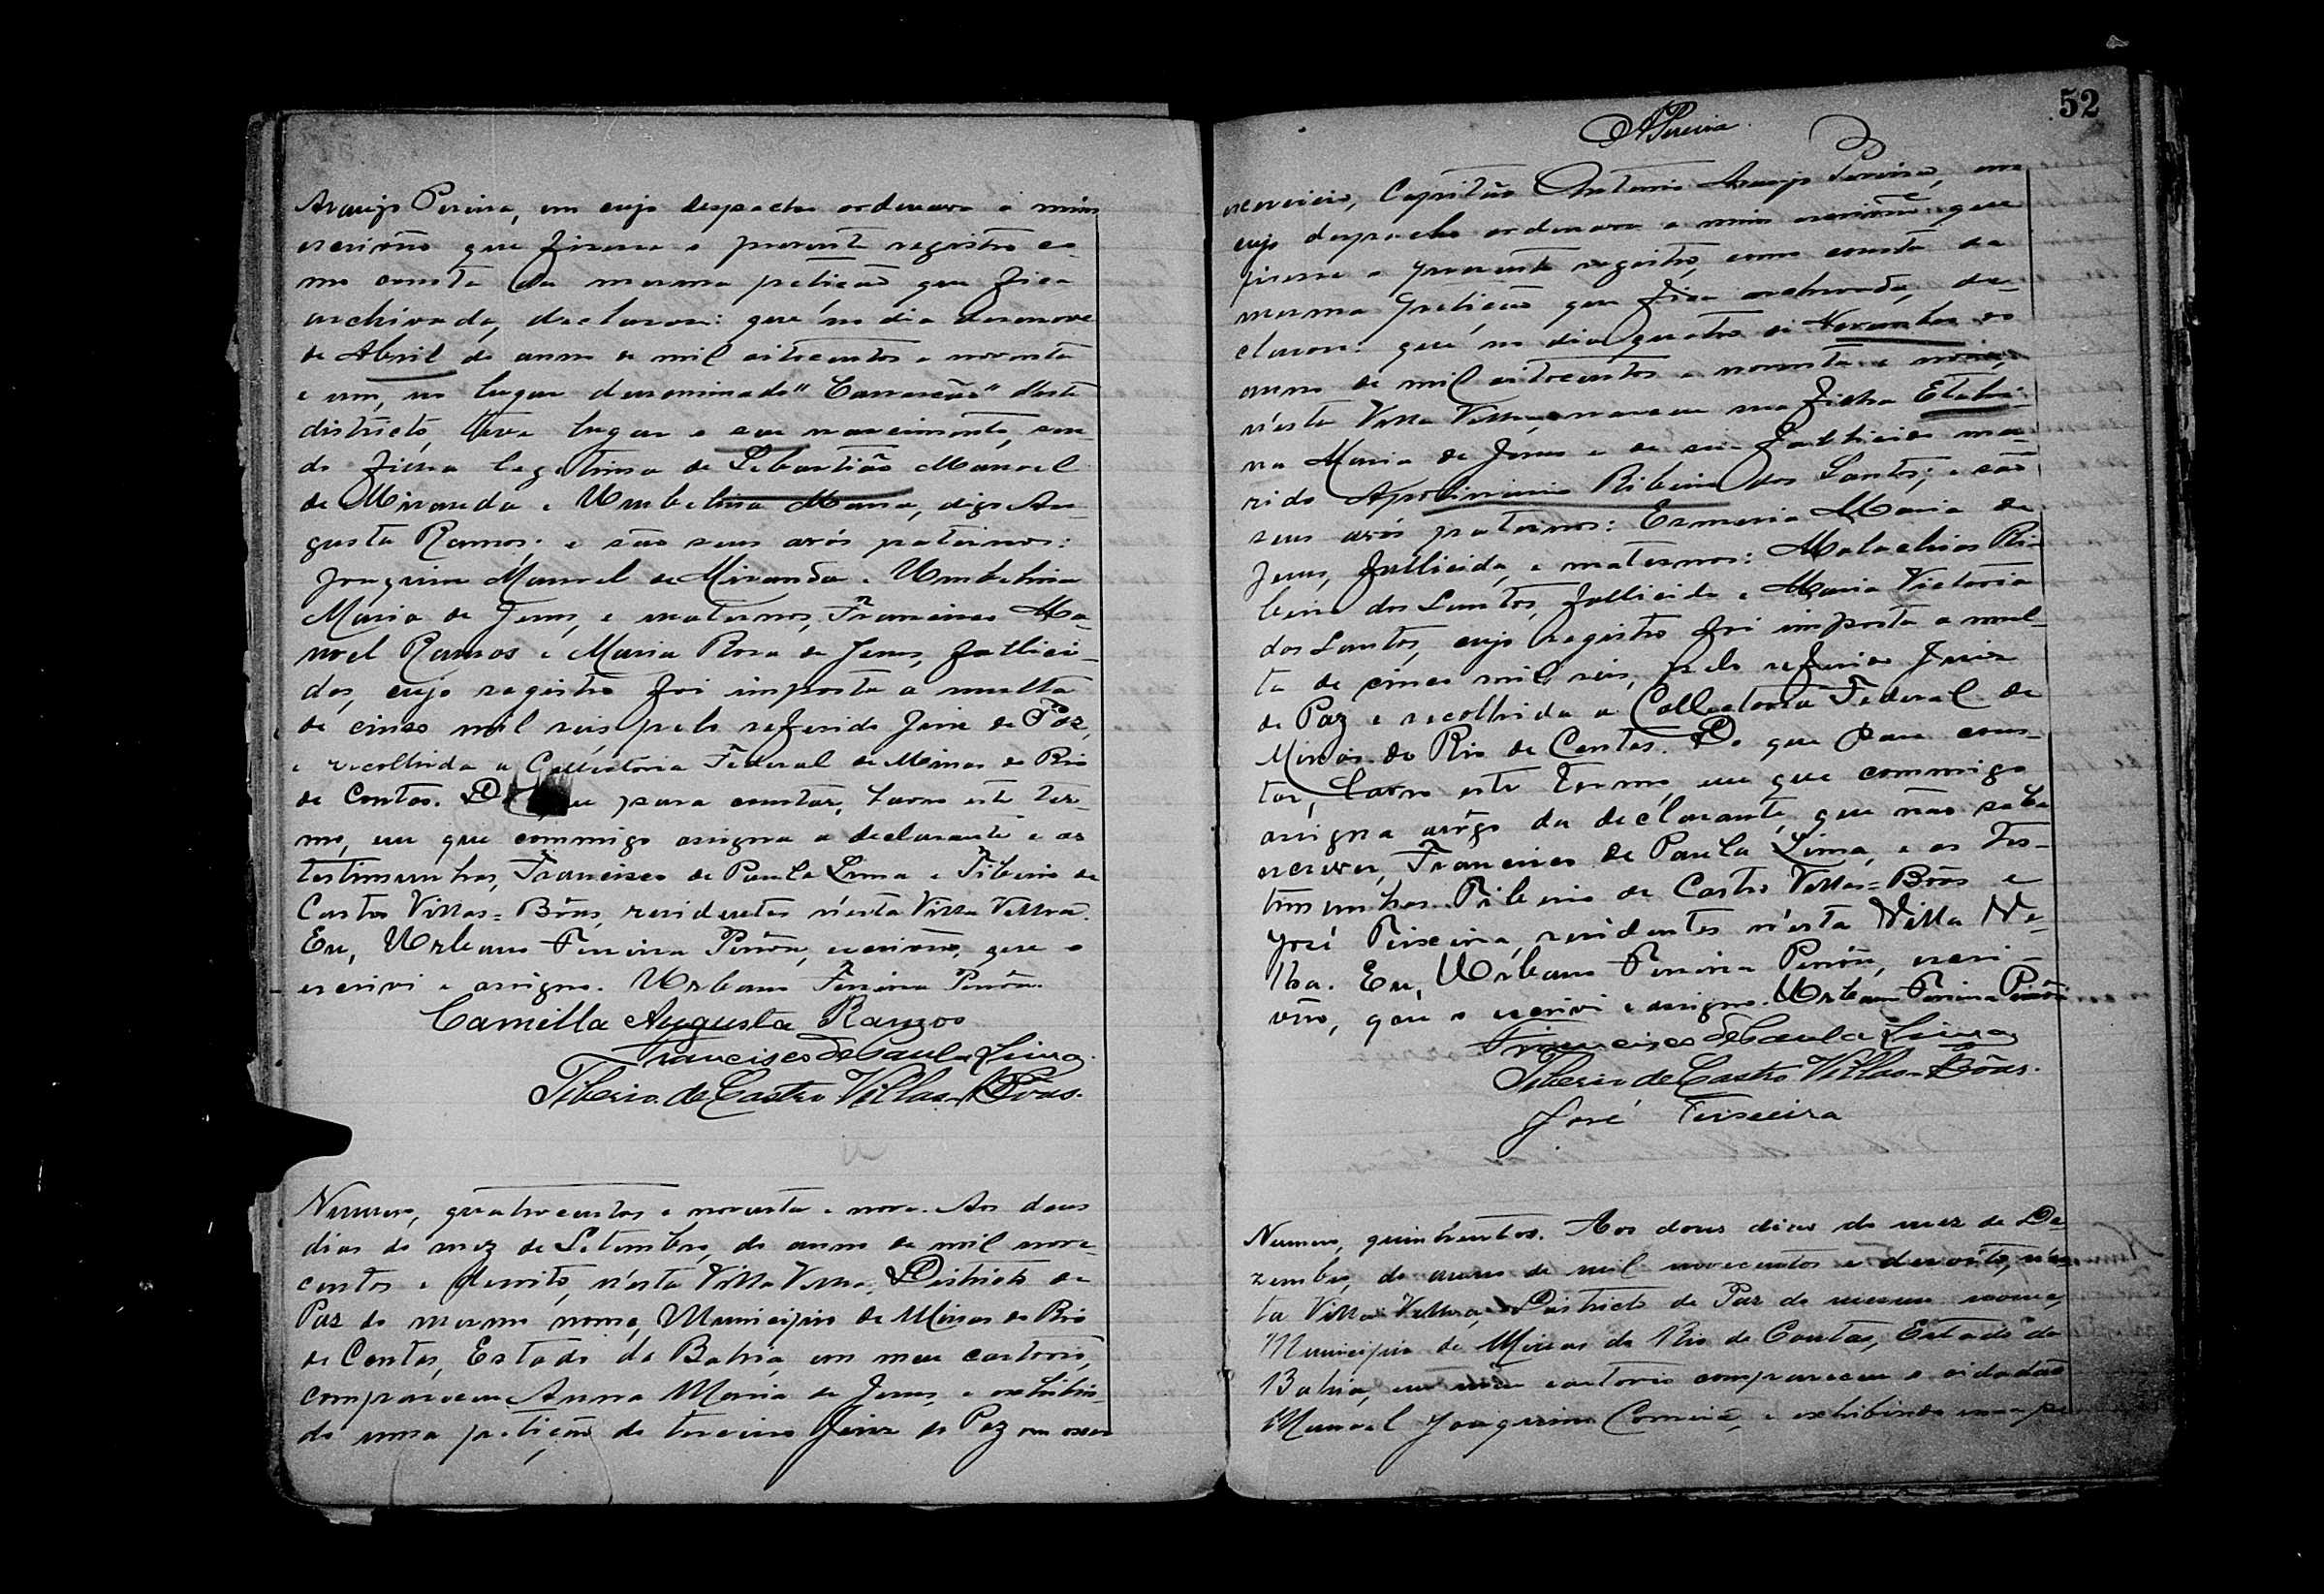 Araujo Pereira, em cujo despacho ordenava a mim
escrivão que fizesse o presente registro co-
mo consta da mesma petição que fica
archivada, declarou: que no dia desenove
de Abril do anno de mil oitocentos e noventa
e um, no lugar denominado "Carração" deste
districto, teve lugar o seu nascimento, sen-
do filha legitima de Sebastião Manoel
de Miranda e Umbelina Maria, digo Au-
gusta Ramos; e são seus avós paternos:
Joaquim Manoel de Miranda e Umbelina
Maria de Jesus, e maternos, Francisco Ma-
noel Ramos e Maria Rosa de Jesus, falleci-
dos, cujo registro foi imposta a multa
de cinco mil reis pelo referido Juiz de Paz,
e recolhida a Collectoria Federal de Minas do Rio
de Contas. Do que para constar, lavro este ter-
mo, em que commigo assigna a declarante e as
testimunhas, Francisco de Paula Lima e Tiberio de
Castro Villas=Bôas, residentes n'esta Villa Velha.
Eu, Urbano Ferreira escrivão, que o
escrivi e assigno. Urbano Ferreira
Camilla Augusta Ramos
Francisco de Paula Lima
Tiberio de Castro Villas=Bôas.
Numero, quatrocentos e noventa e nove. Aos dous
dias do mez de Setembro, do anno de mil nove-
centos e desoito, n'esta Villa Velha, Districto de
Paz do mesmo nome, Municipio de Minas do Rio
de Contas, Estado da Bahia, em meu cartorio,
compareceu Anna Maria de Jesus, e exhibin-
do uma petição do terceiro Juiz de Paz em exer
52
APereira
excercicio, Capitão Antonio Araujo Pereira, em
cujo despacho ordenava a mim escrivão que
fizesse o presente registro, como consta da
mesma petição que fica archivada, de-
clarou: que no dia quatro de Novembro do
anno de mil oitocentos e noventa e
n'esta Villa Velha, nasceu sua filha
na Maria de Jesus e de seu fallecido ma-
rido Apolinario Ribeiro dos Santos; e são
seus avós paternos: Esmeria Maria de
Jesus, fallicida, e maternos: Malachias Ri-
beiro dos Santos, fallicido e Maria Victoria
dos Santos, cujo registro foi imposta a mul-
ta de cinco mil reis, pelo referido Juiz
de Paz e recolhida a Collectoria Federal de
Minas do Rio de Contas. Do que para cons-
tar, lavro este termo, em que commigo
assigna arôgo da declarante, que não sabe
escrever, Francisco de Paula Lima, e as tes-
timunhas Tiberio de Castro Villas=Bôas e
José Teixeira, residentes n'esta Villa Ve-
lha. Eu, Urbano Ferreira escri-
vão, que o escrivi e assigno. Urbano Ferreira
Francisco de Paula Lima
Tiberio de Castro Villas=Bôas.
José Teixeira
Numero, quinhentos. Aos dous dias do mez de De-
zembro, do anno de mil novecentos e desoito, n'es-
ta Villa Velha, Districto de Paz do mesmo nome,
Municipio de Minas do Rio de Contas, Estado da
Bahia, em meu cartorio compareceu o cidadão
Manoel Joaquim Correia, e exhibindo uma pe